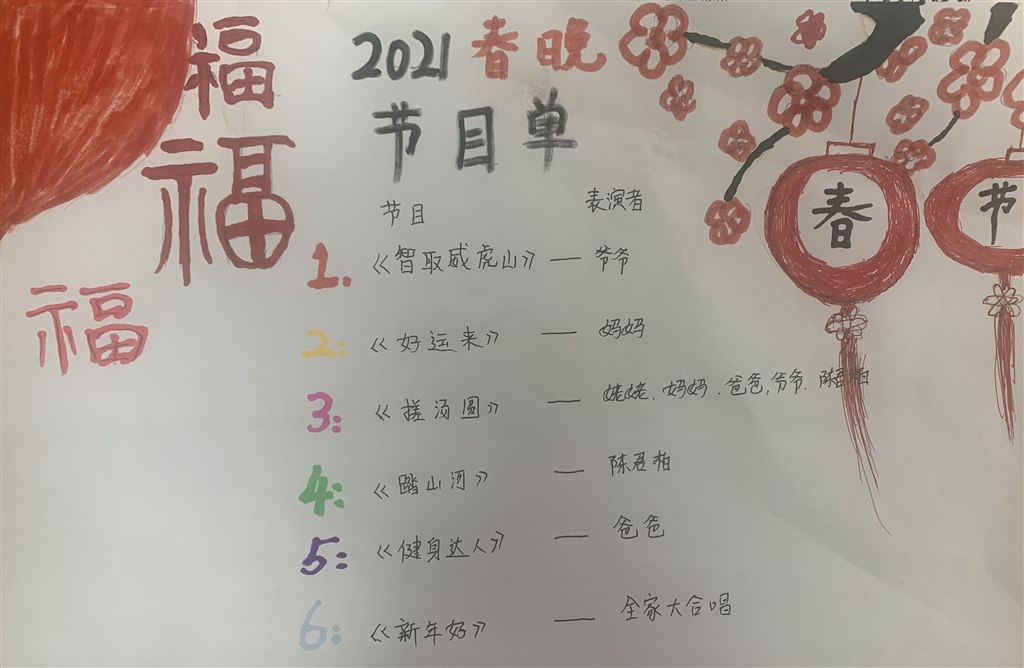 福
福
福
2021 春晚
节目单
春
节
节目 表演者
1. 《智取威虎山》 — 爷爷
2: 《好运来》 — 妈妈
3: 《搓汤圆》 — 姥姥、妈妈、爸爸,爷爷、陈君柏
4: 《踏山河》 — 陈君柏
5: 《健身达人》 — 爸爸
6: 《新年好》 — 全家大合唱